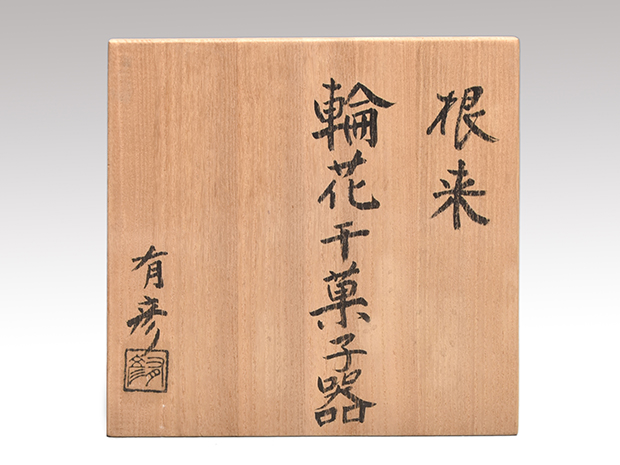 根来
輪花干菓子器
有彦